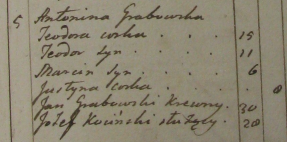 5 Antonina Grabowska
Teodora corka . . . 15
Teodor syn . . . . 11
Marcin syn . . . . 6
Justyna corka . . . . 8
Jan Grabowski Krewny. 30
Jozef Kociński służący. 20